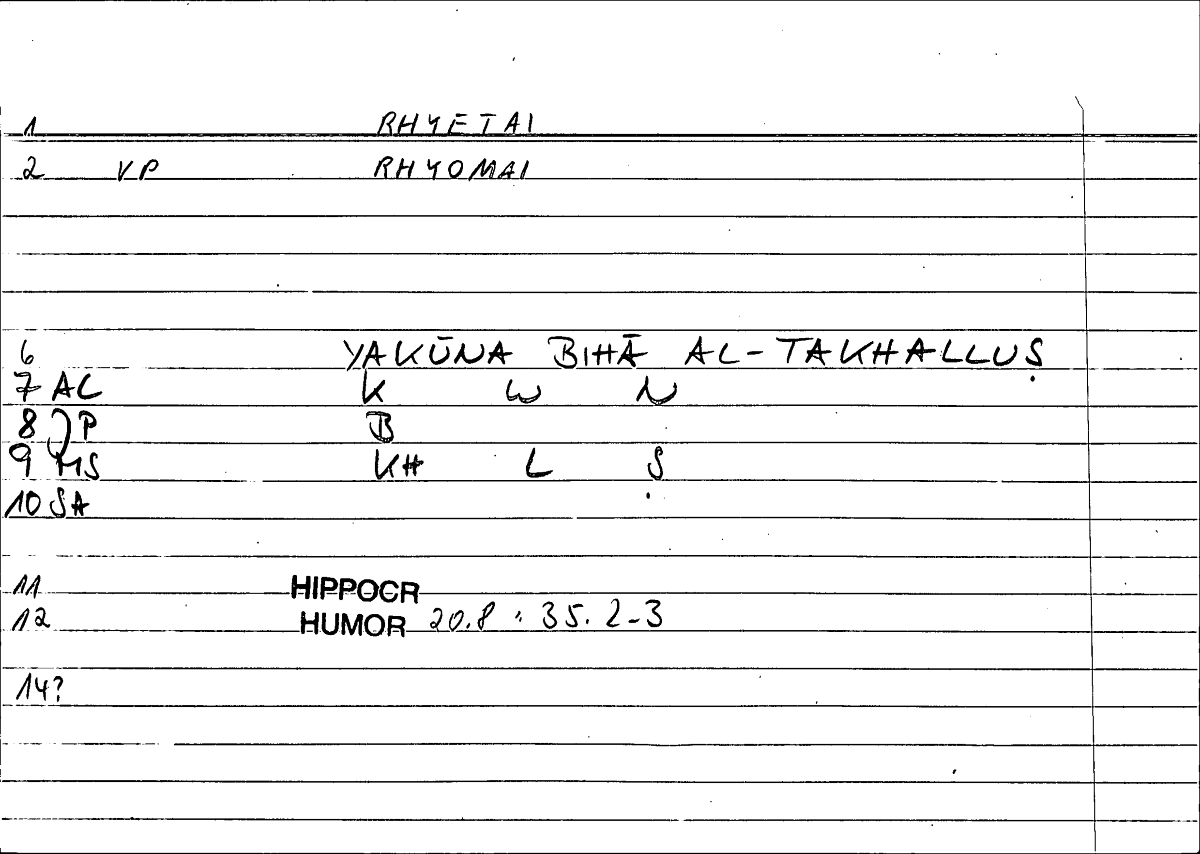 1 RHYETAI
2 VP RHYOMAI
6 YAKŪNA BIHĀ AL-TAKHALLUṢ
7 AL K W N
8 )P B
9 MS KH L Ṣ
10 SA
11 HIPPOCR
12 HUMOR 20.8 : 35.2-3
14?